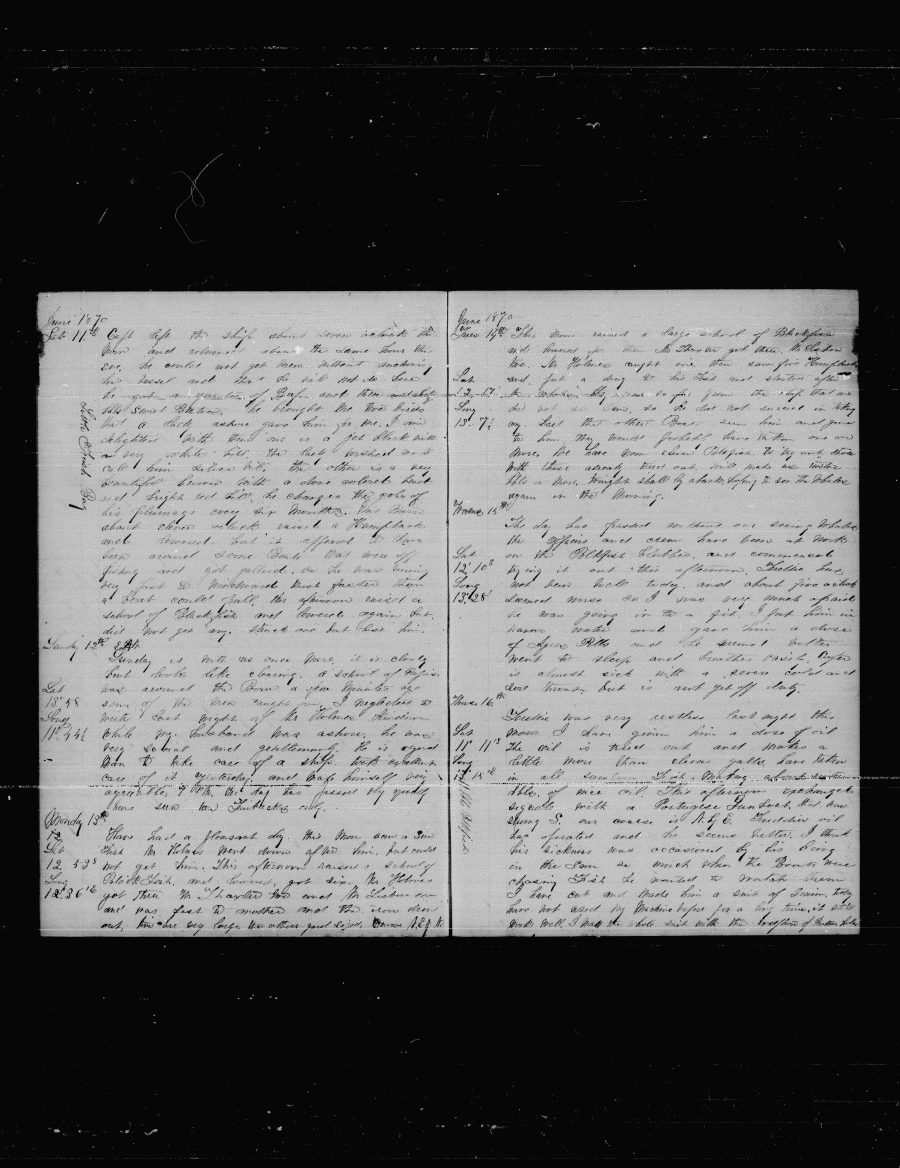 June 1870
Sat 11th Capt left the ship about seven o'clock this
morn and returned about the same hour this
eve, he could not get there without
his vessel and that he will not do here
he got a quarter of Beef and some
and Sweet Potatoes. he brought me two birds
that a lady ashore gave him for me. I am
delighted with them one is a jet black with
a very white bill, the Capt wished me to
call him Silver bill, the other is a very
beautiful with a dove colored
and bright red bill, he changes the color of
his plumage every six months. This morn
about eleven o'clock raised a Humpback
and lowered but it appeared to have
been around some Boats that were off
fishing and got gallied, as he was going
very fast to windward much faster than
a boat could pull, this afternoon raised a
school of Blackfish and lowered again but
did not get any. struck one but lost him.
Little Fish Bay
Sunday 12th
Sunday is with us once more, it is cloudy
but looks like clearing. a school of
was around the Bow a few minutes ago
some of the men caught one, I neglected to
write last night of Mr Holmes kindness
while my husband was ashore, he was
very social and gentlemanly. He is a good
man to take care of a ship. took excellent
care of it yesterday, and Capt himself very
agreeable, the day has passed very quietly
have seen two Finbacks only.
Lat
13 58
Long
11 54½
Monday 13th
Have had a pleasant day. this morn saw a Sun
Fish Mr Holmes went down after him, but could
not get him. This afternoon raised a school of
Blackfish, and lowered, got six. Mr Holmes
got three Mr Thaxter two and Mr Lisbon one
and was fast to another and the iron drew
out, two are very large the others good sized, Course N.
Lat
12 52
Long
12 36
June 1870
Tues 14th This morn raised a large school of Blackfish
and lowered for them Mr Thaxter got three, Mr Lisbon
two. Mr Holmes caught one then saw five Humpbacks
and put a drug to his Fish and started after
whales. they were so far from the ship that we
did not see them, so he did not succeed in taking
any. had the other Boats seen him and gone
to him they would probably have taken one or
more, We have now eleven Blackfish to try out those
with those already tried out will make
bbls or more. tonight shall lay aback, hoping to see the whales
again in the morning.
Lat
Long
13. 7
Wednes 15th
The day has passed without our seeing whales,
the officers and crew have been at work
on the Blkfish Blubber, and commenced
trying it out this afternoon. Freddie has
not been well today, and about five o'clock
seemed worse so I was very much afraid
he was going in to a fit, I put him in
warm water and gave him a dose
of Ayers Pills and he seemed better
went to sleep and breathes easily.
is almost sick with a severe cold and
sore throat, but is not yet off duty.
Lat
12 10
Long
13 28
Thurs 16th
Freddie was very restless last night this
morn I have given him a dose of oil
The oil is tried out and makes a
little more than eleven galls. have taken
in all seventeen Fish. Making about seventeen
bbls, of nice oil. This afternoon exchanged
signals with a Portugese Gunboat, that was
going S. our course is N. & E. Freddies oil
has operated and he seems better. I think
his sickness was occasioned by his being
in the Sun so much when the Boats were
chasing Fish he wanted to watch them
I have cut and made him a suit of Denim today
have not used my Machine before for a long time, it still
works well. I made the whole suit with the exception of button holes
Lat
11 11
Long
13 18